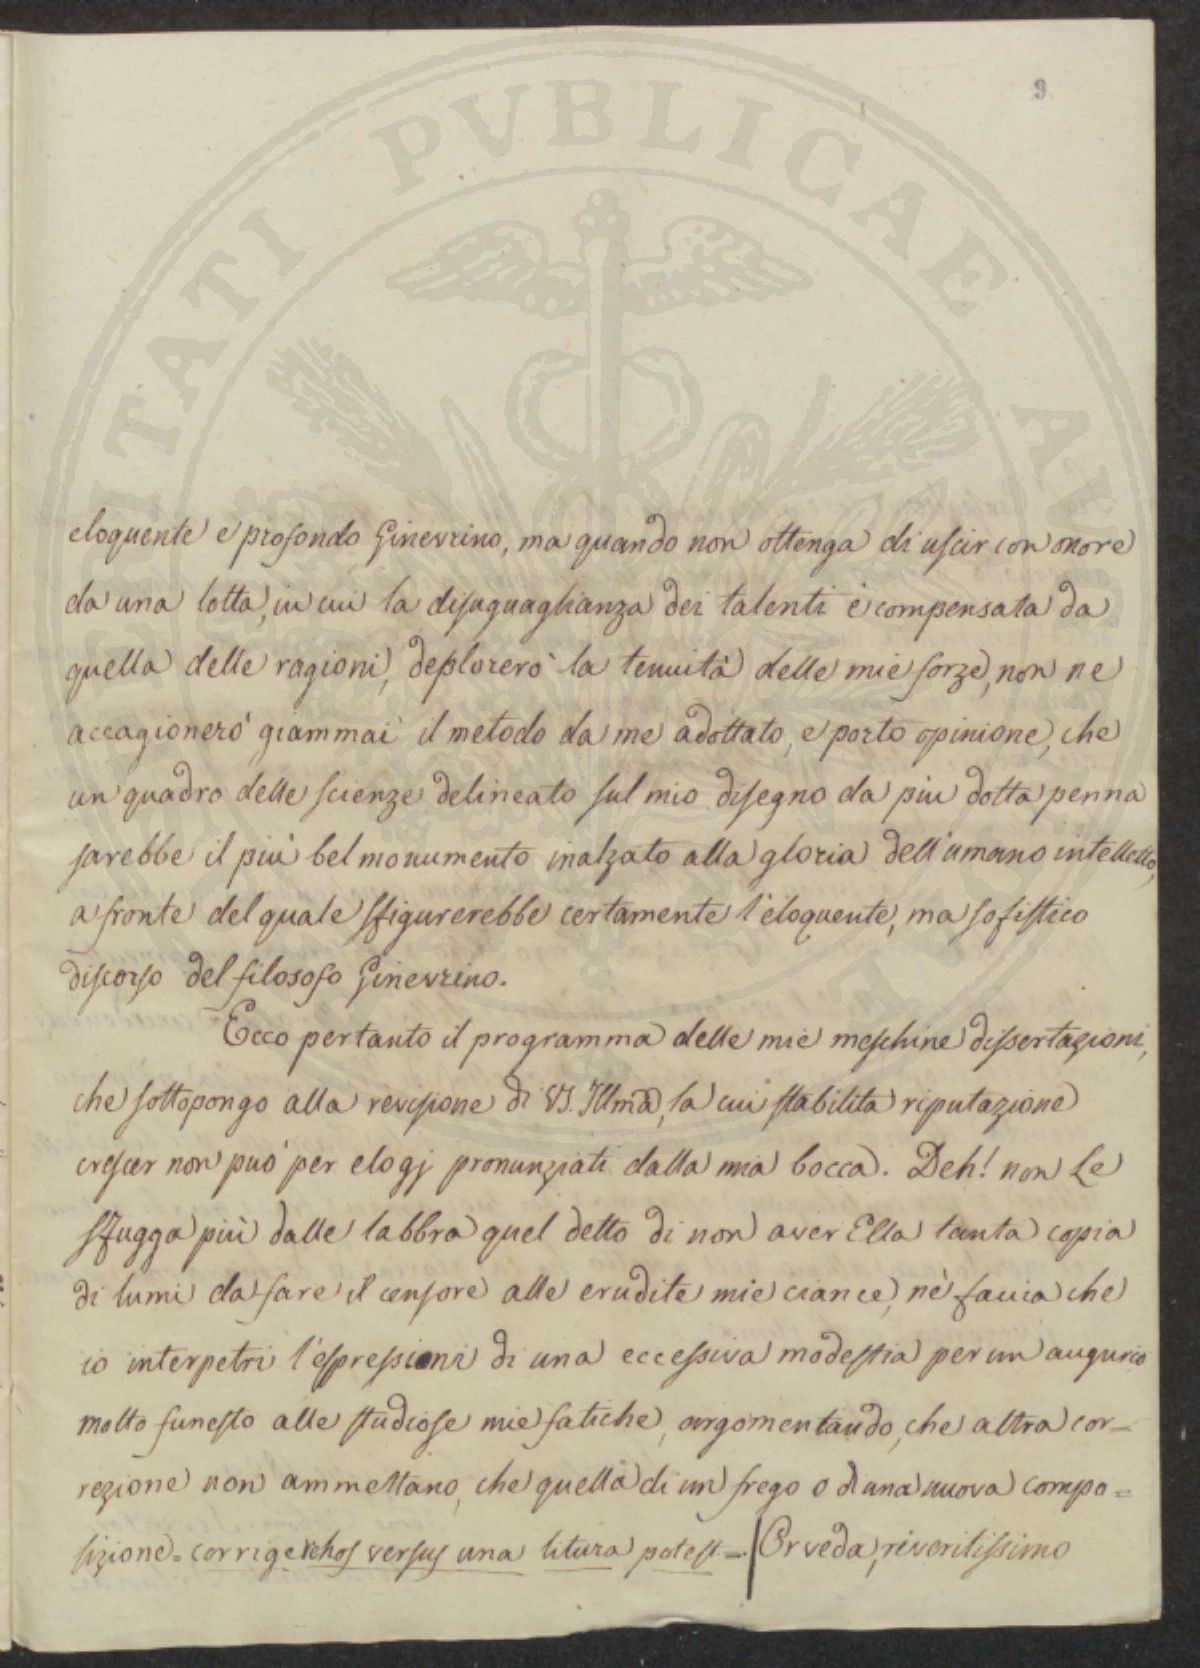 9
eloquente e profondo Ginevrino, ma quando non ottenga di uscir con onore
da una lotta, in cui la disuguaglianza dei talenti è compensata da
quella delle ragioni, deplorerò la tenuità delle mie forze, non ne
accagionerò giammai il metodo da me adottato, e porto opinione, che
un quadro delle scienze delineato sul mio disegno da più dotta penna
sarebbe il più bel monumento inalzato alla gloria dell'umano intelletto,
a fronte del quale sfigurerebbe certamente l'eloquente, ma sofistico
discorso del filosofo Ginevrino.
Ecco pertanto il programma delle mie meschine dissertazioni,
che sottopongo alla revisione di VS. Illma, la cui stabilita riputazione
crescer non può per elogj pronunziati dalla mia bocca. Deh! non Le
sfugga più dalle labbra quel detto di non aver Ella tanta copia
di lumi da fare il censore alle erudite mie ciance, nè faccia che
io interpetri l'espressioni di una eccessiva modestia per un augurio
molto funesto alle studiose mie fatiche, argomentando, che altra cor-
rezione non ammettano, che quella di un frego o di una nuova compo=
sizione = corrigere hos versus una litura potest =. Or veda, riveritissimo
PVBLICAE